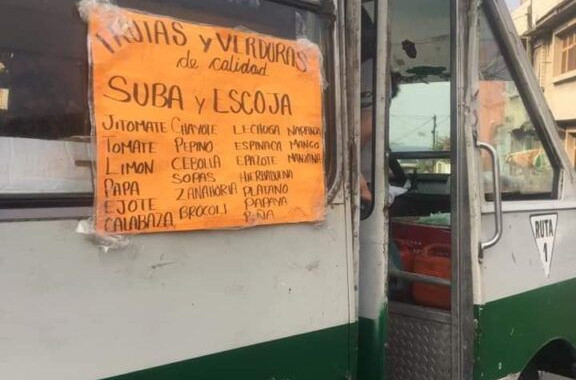 FRUTAS y VERDURAS
de calidad
SUBA y ESCOJA
JITOMATE CHAYOTE LECHUGA NARANJA
TOMATE PEPINO ESPINACA MANGO
LIMON CEBOLLA EPAZOTE MANZANA
PAPA SOPAS HIERBABUENA
EJOTE ZANAHORIA PLATANO
CALABAZA BROCOLI PAPAYA
PIÑA
RUTA
1